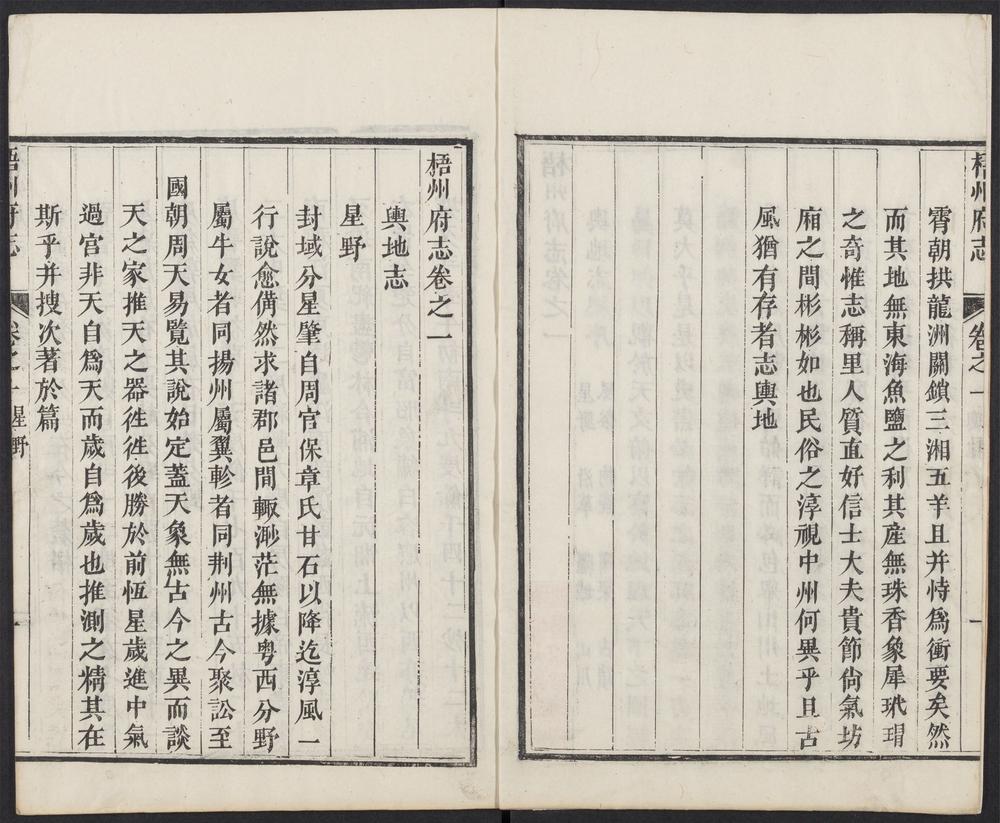 梧州府志
卷之一
一
霄朝拱龍洲關鎖三湘五羊且并恃爲衝要矣然
而其地無東海魚鹽之利其産無珠香象犀玳瑁
之奇惟志稱里人質直好信士大夫貴節尙氣坊
廂之間彬彬如也民俗之淳視中州何異乎且古
風猶有存者志輿地
梧州府志卷之一
輿地志
星野
封域分星肇自周官保章氏甘石以降迄淳風一
行說愈備然求諸郡邑間輒渺茫無據粵西分野
屬牛女者同揚州屬翼軫者同荆州古今聚訟至
國朝周天易覽其說始定蓋天象無古今之異而談
天之家推天之器徃徃後勝於前恆星歲進中氣
過宮非天自爲天而歲自爲歲也推測之精其在
斯乎并搜次著於篇
梧州府志
卷之一
星野
一